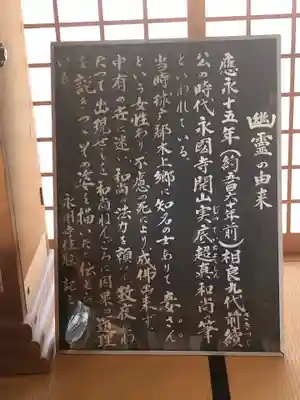 幽霊の由来
應永十五年（約五百六十年前）相良九代前續
さきつぐ
公の時代永國寺開山実底超真和尚の筆
といわれている。
当時球磨郡木上郷に知名の士ありて妾さん
という女性あり不慮の死により成佛出来ず
中有の世に迷い和尚の法力を頼って数夜にわ
たって出現せしを和尚ねんごろに因果の道理
を説きつゝその姿を描いたと伝えられて
いる
永国寺住職 記